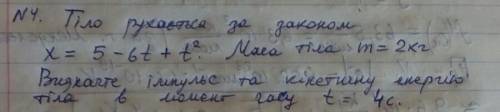 №4. Тіло рухається за законом
x = 5 - 6t + t². Маса тіла m = 2кг
Визначте імпульс та кінетичну енергію
тіла в момент часу t = 4c.